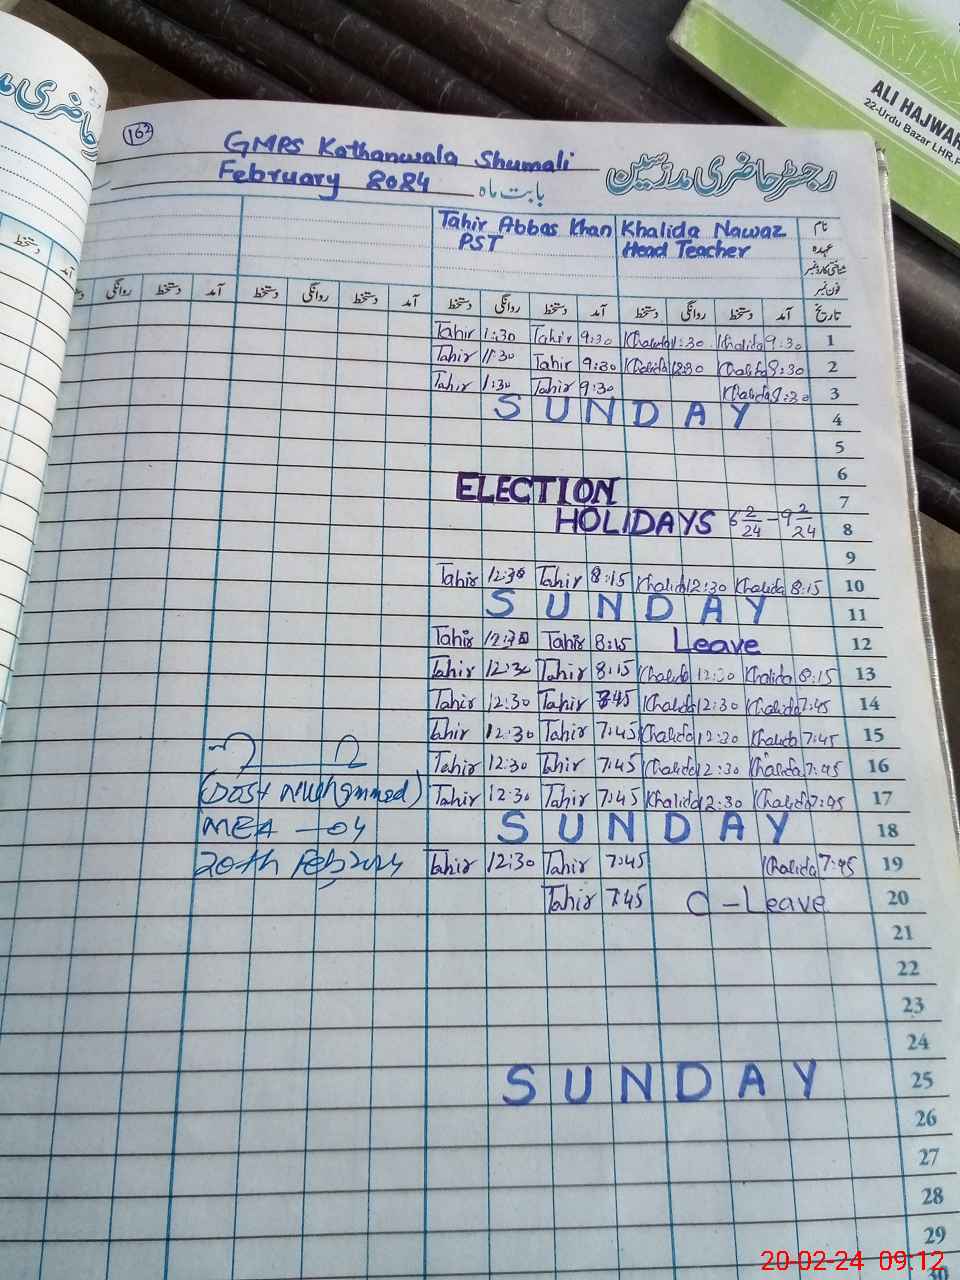 حاضری مد
ALI HAJWAR
22-Urdu Bazar LHR.
162
GMPS Kathanwala Shumali
رجسٹر حاضری مدرسین
February 2024 بابت ماہ
Tahir Abbas Khan Khalida Nawaz نام
PST Head Teacher عہدہ
شناختی کارڈ نمبر
فون نمبر
روانگی دستخط آمد دستخط روانگی دستخط آمد دستخط روانگی دستخط آمد دستخط روانگی دستخط آمد تاریخ
Tahir 1:30 Tahir 9:30 Khalida 1:30 Khalida 9:30 1
Tahir 11:30 Tahir 9:30 Khalida 12:30 Khalida 8:30 2
Tahir 1:30 Tahir 9:30 Khalida 9:30 3
SUNDAY 4
5
6
ELECTION 7
HOLIDAYS 6 2/24 - 9 2/24 8
9
Tahir 12:30 Tahir 8:15 Khalida 12:30 Khalida 8:15 10
SUNDAY 11
Tahir 12:30 Tahir 8:15 Leave 12
Tahir 12:30 Tahir 8:15 Khalida 12:30 Khalida 8:15 13
Tahir 12:30 Tahir 7:45 Khalida 12:30 Khalida 7:45 14
Tahir 12:30 Tahir 7:45 Khalida 12:30 Khalida 7:45 15
Tahir 12:30 Tahir 7:45 Khalida 12:30 Khalida 7:45 16
(Dost Muhammed) Tahir 12:30 Tahir 7:45 Khalida 12:30 Khalida 7:45 17
MEA - 04 SUNDAY 18
20th Feb 2024 Tahir 12:30 Tahir 7:45 Khalida 7:45 19
Tahir 7:45 C - Leave 20
21
22
23
24
SUNDAY 25
26
27
28
29
30
20-02-24 09:12